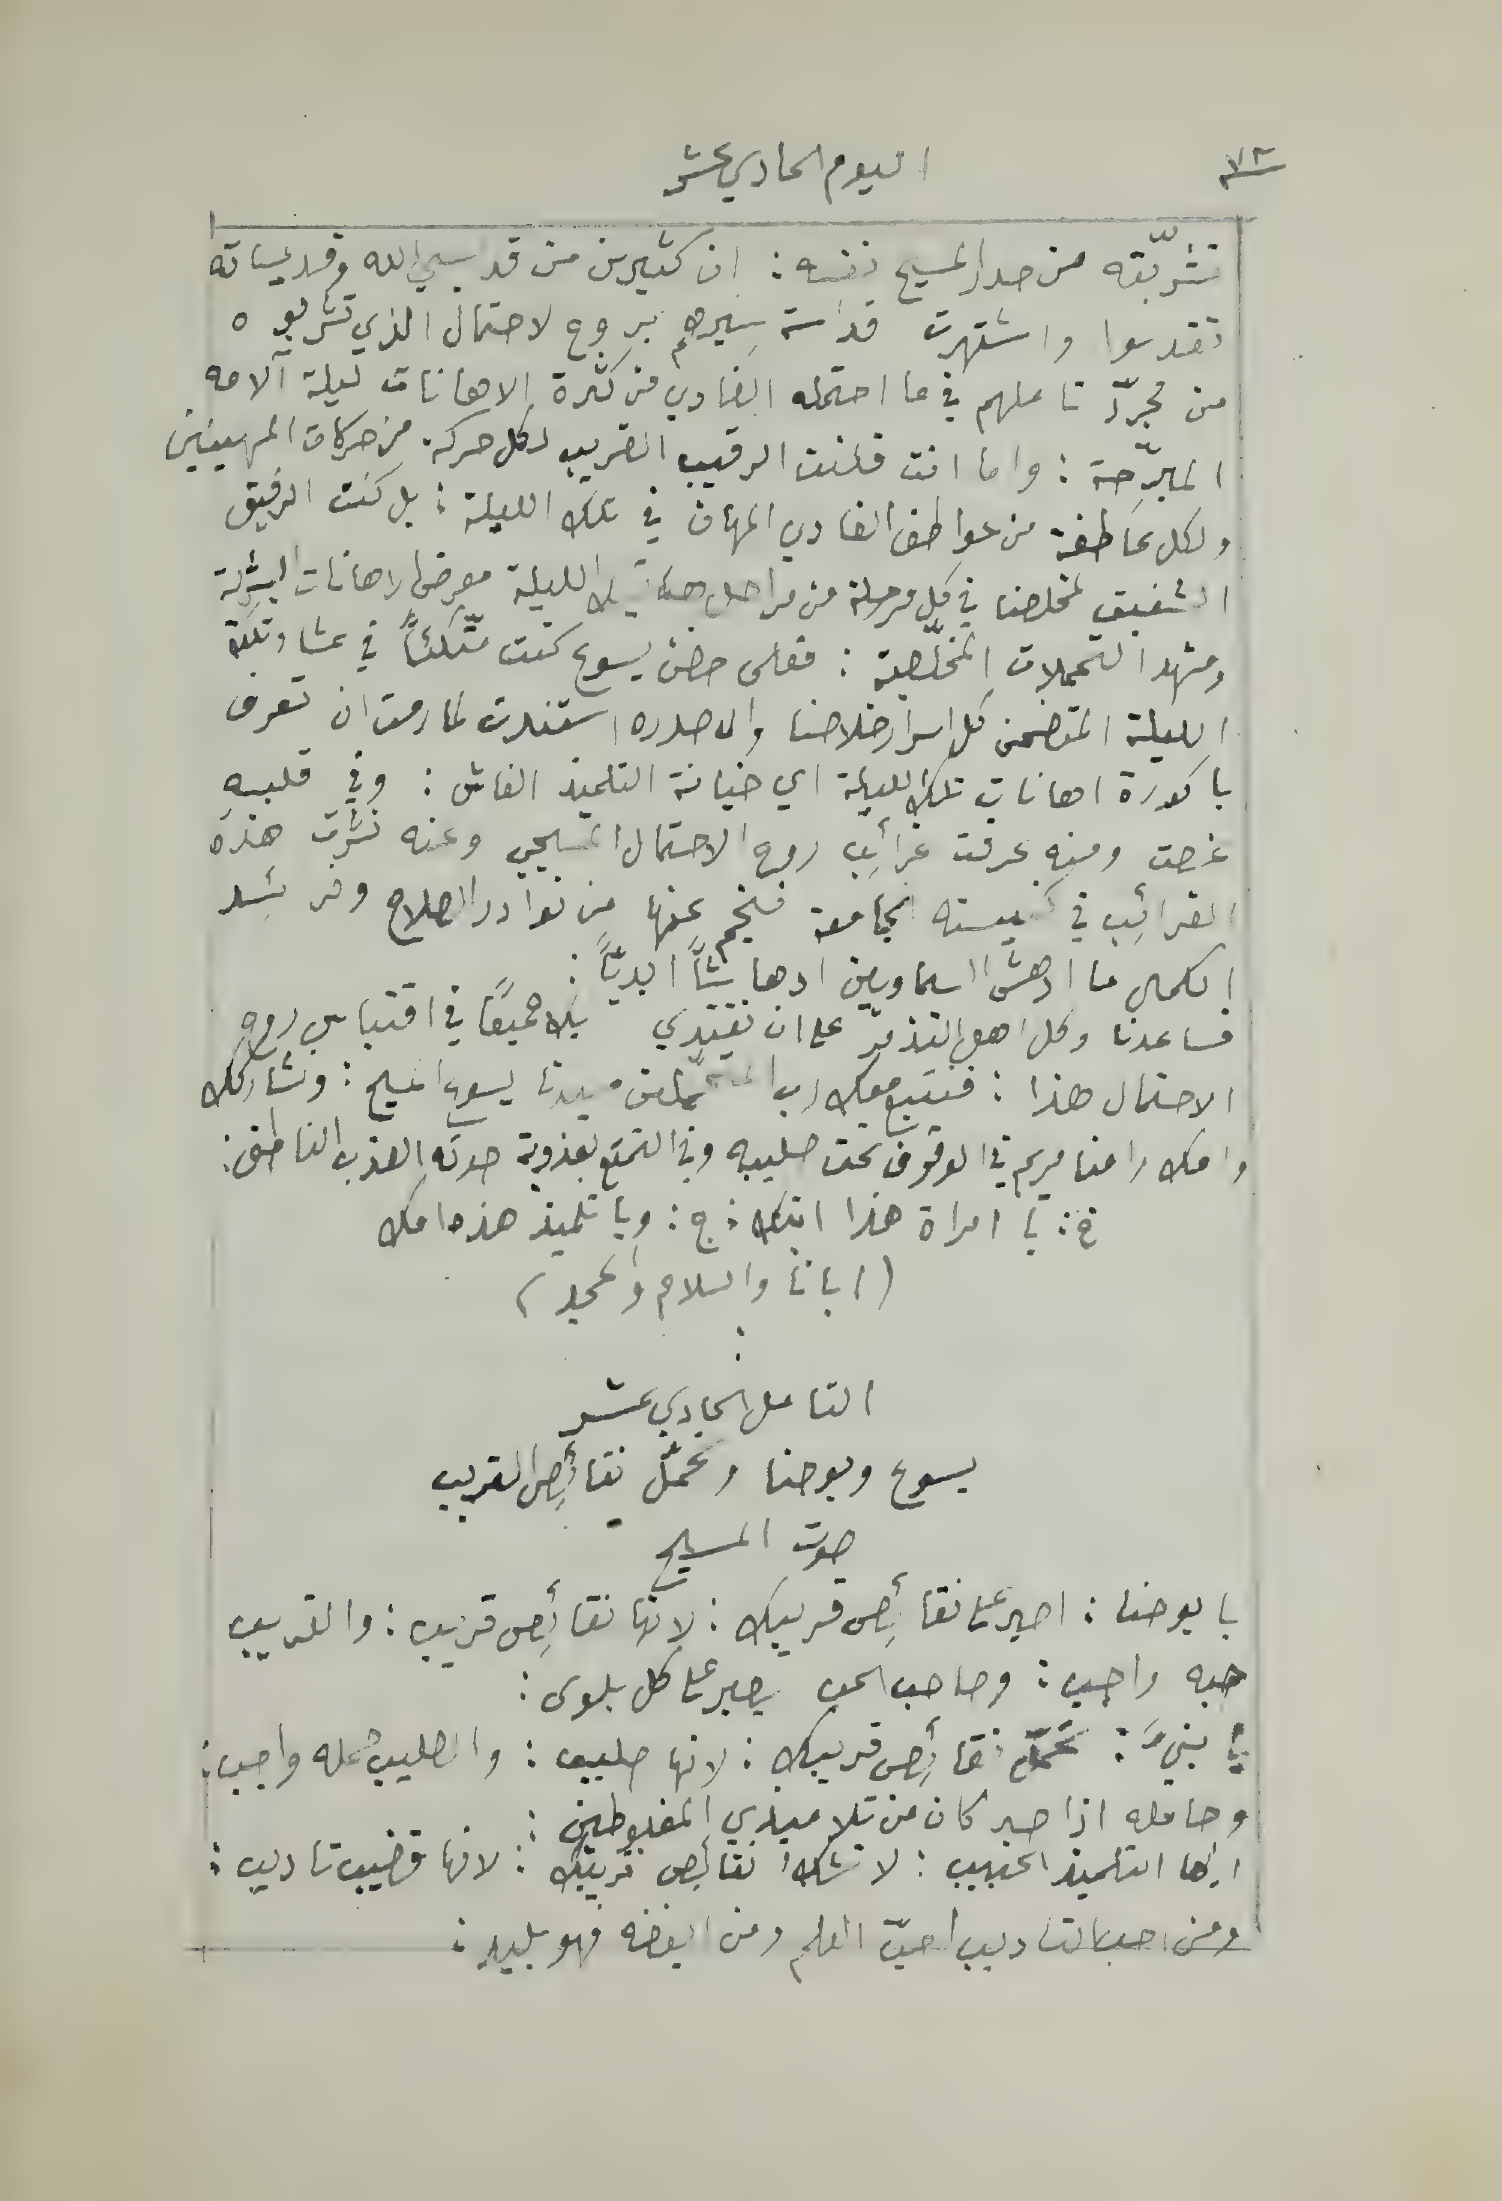 ٧٢ اليوم الحادي عشر
تشربّته من صدر المسيح نفسه : ان كثيرين من قديسي الله وقديساته
تقدسوا واشتهرت قداسة سيرهم بروح الاحتمال الذي تشربوه
من مجرّد تاملهم في ما احتمله الفادي من كثرة الاهانات ليلة آلامه
المبرّحة : واما انت فكنت الرقيب القريب لكل حركة من حركات المهينين
ولكل عاطفة من عواطف الفادي المهان في تلك الليلة : بل كنت الرفيق
الشفيق لمخلصنا في كل مرحلة من مراحل الليلة معرض اهانات البشرية
ومشهد التحملات المخلّصية : فعلى حضن يسوع كنت متّكئاً في عشاء تلك
الليلة المتضمن كل اسرار خلاصنا والى صدره استندت لما رمت ان تعرف
باكورة اهانات تلك الليلة اي خيانة التلميذ الغاش : وفي قلبه
غصت ومنه عرفت غرائب روح الاحتمال المسيحي وعنه نشرت هذه
الغرائب في كنيسته الجامعة فنجم عنها من نوادر الصلاح وفرائد
الكمال ما ادهش السماويين ادهاشاً ابديّاً :
فساعدنا وكل اهل التذمّر على ان نقتدي بك جميعًا في اقتباس روح
الاحتمال هذا : فنتبع معك رب المتحمّلين سيدنا يسوع المسيح : ونشاركك
وامك وامنا مريم في الوقوف تحت صليبه وفي التمتع بعذوبة صوته العذب الناطق :
خ : يا امراة هذا ابنك : ج : ويا تلميذ هذه امك
(ابانا والسلام والمجد)
التامل الحادي عشر
يسوع ويوحنا وتحمّل نقائص القريب
صوت المسيح
يا يوحنا : اصبر على نقائص قريبك : لانها نقائص قريب : والقريب
حبه واجب : وصاحب الحب يصبر على كل بلوى :
يا بنيَّ : تحمّل نقائص قريبك : لانها صليب : والصليب حمله واجب :
وحامله اذا صبر كان من تلاميذي المغبوطين :
ايها التلميذ الحبيب : لا تشك نقائص قريبك : لانها قضيب تاديب :
ومن احب التاديب احبّ العلم ومن ابغضه فهو بليد :